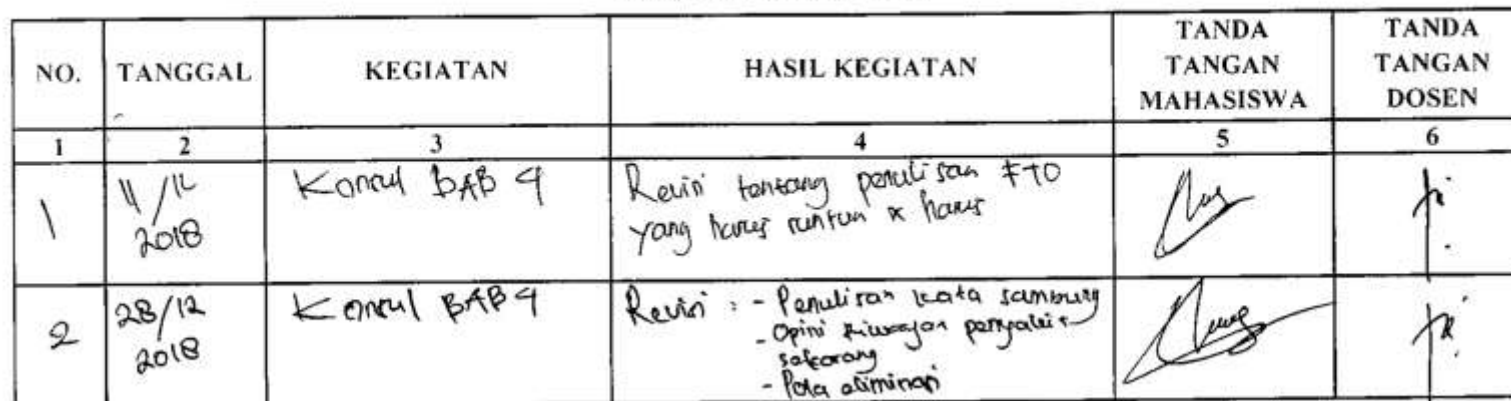 NO. TANGGAL KEGIATAN HASIL KEGIATAN TANDA TANGAN MAHASISWA TANDA TANGAN DOSEN
1 2 3 4 5 6
1 11/12 2018 Konsul BAB 4 Revisi tentang penulisan FTO
yang harus runtun & harus
2 28/12 2018 Konsul BAB 4 Revisi : - Penulisan kata sambung
- Opini Riwayat penyakit
sekarang
- Pola eliminasi